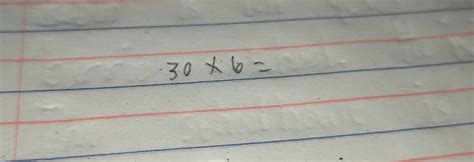 30 × 6 =